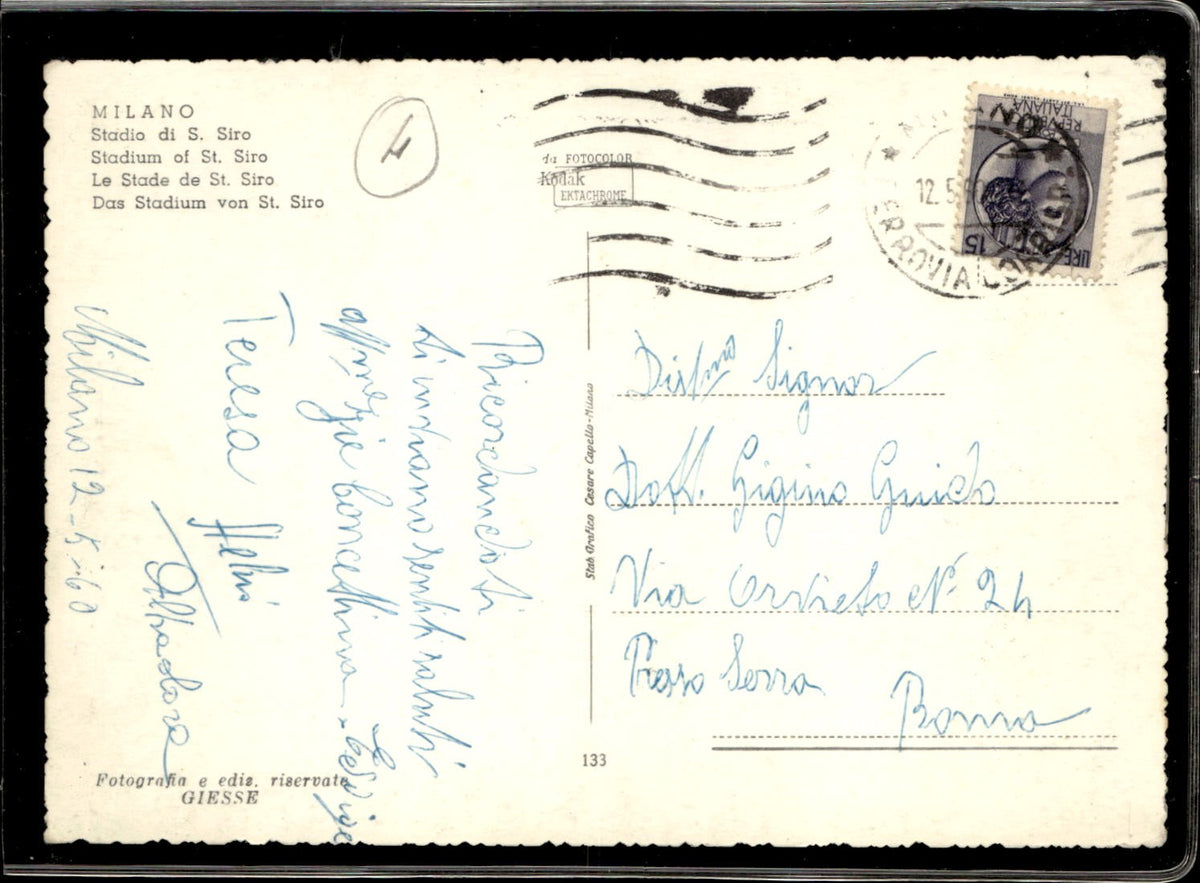 MILANO
Stadio di S. Siro
Stadium of St. Siro
Le Stade de St. Siro
Das Stadium von St. Siro
4
da FOTOCOLOR
Kodak
EKTACHROME
12.5
FERROVIA CORRISP.
REPVBBLICA
ITALIANA
LIRE 15
Ricordandoti
ti inviamo sentiti saluti
Concettina
Teresa
Milano 12-5-60
Stab. Grafico Cesare Capello-Milano
Dist/mo Signor
Dott. Gigino Guido
Via Orvieto N° 24
Presso Serra
Roma
133
Fotografia e ediz. riservate
GIESSE